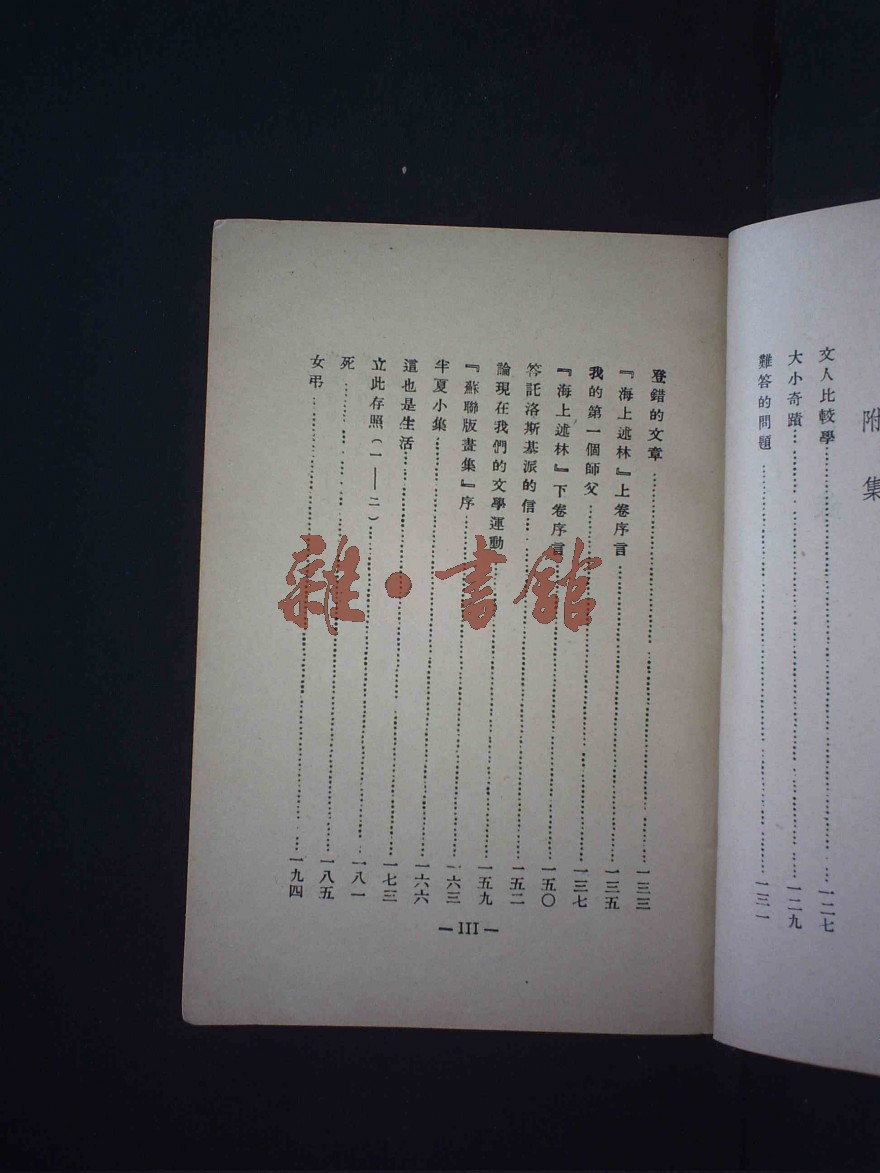 附集
文人比較學……一二七
大小奇蹟……一二九
難答的問題……一三一
登錯的文章……一三三
『海上述林』上卷序言……一三五
我的第一個師父……一三七
『海上述林』下卷序言……一五〇
答託洛斯基派的信……一五二
論現在我們的文學運動……一五九
『蘇聯版畫集』序……一六三
半夏小集……一六六
這也是生活……一七三
立此存照（一——二）……一八一
死……一八五
女弔……一九四
— III —
雜·書館